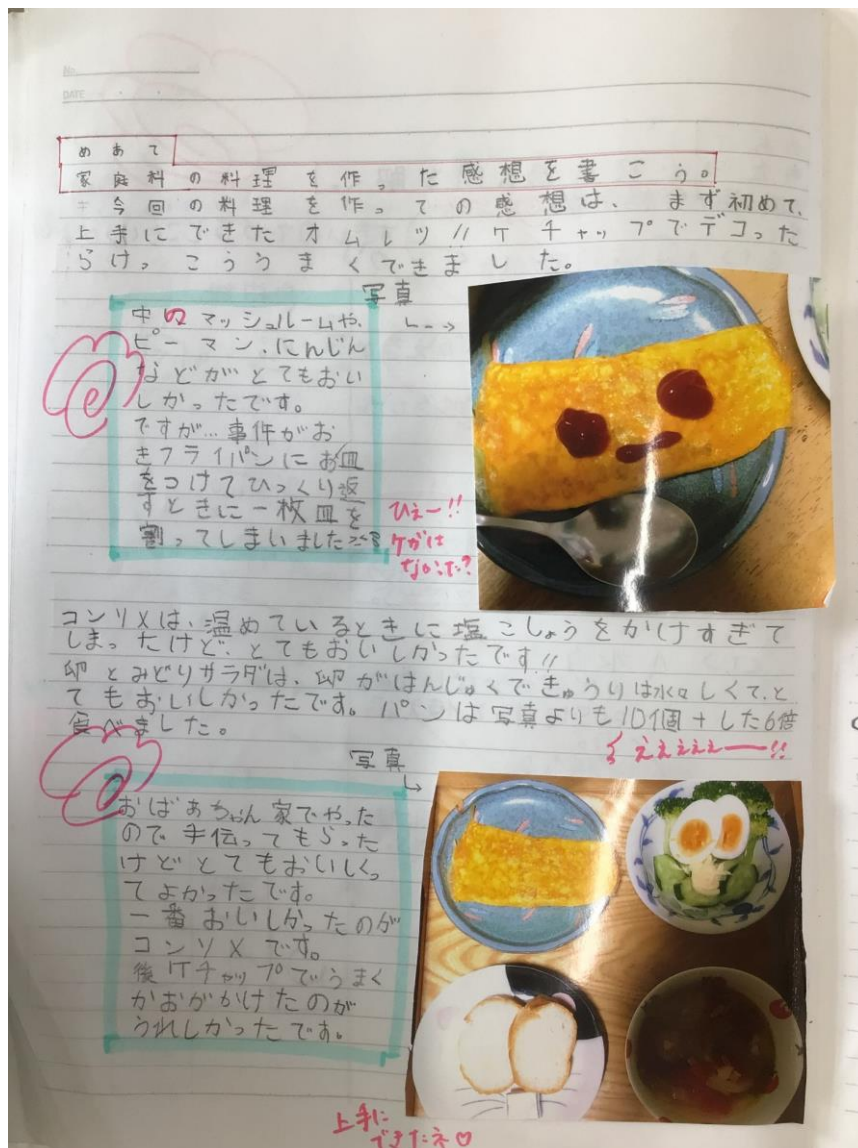 No.
DATE
めあて
家庭科の料理を作った感想を書こう。
今回の料理を作っての感想は、まず初めて、
上手にできたオムレツ!!ケチャップでデコった
らけっこううまくできました。
写真
中のマッシュルームや、
ピーマン、にんじん
などがとてもおい
しかったです。
ですが…事件がお
きフライパンにお皿
をつけてひっくり返
すときに一枚皿を
割ってしまいました
ひぇー!!
ケガは
なかった?
コンソメは、温めているときに塩こしょうをかけすぎて
しまったけど、とてもおいしかったです!!
卵とみどりサラダは、卵がはんじゅくできゅうりは水々しくて、と
てもおいしかったです。パンは写真よりも10個+した6倍
食べました。
えぇぇぇぇー!!
写真
おばあちゃん家でやった
ので手伝ってもらった
けどとてもおいしくっ
てよかったです。
一番おいしかったのが
コンソメです。
後ケチャップでうまく
かおがかけたのが
うれしかったです。
上手に
できたネ♡